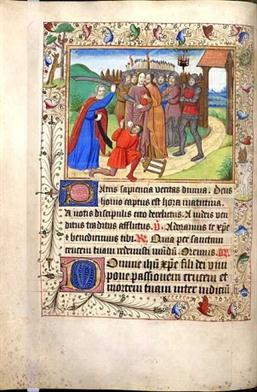 Patris sapiencia veritas divina. Deus
homo captus est hora matutina.
A notis discipulis cito derelictus. A iudeis ven
ditus traditus afflictus. V. Adoramus te xp̄e
et benedicimus tibi. R. Quia per sanctam
crucem tuam redemisti mūdū. Oremus.
Domine ihū xp̄e fili dei vivi
pone passionem crucem et
mortem tuam inter iudiciū